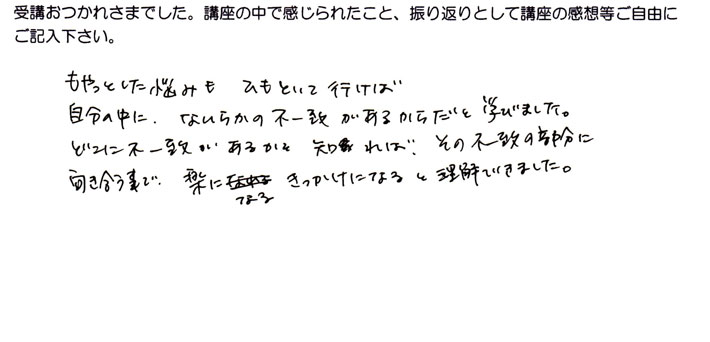 受講おつかれさまでした。講座の中で感じられたこと、振り返りとして講座の感想等ご自由に
ご記入下さい。
もやっとした悩みも ひもといて行けば
自分の中に、なんらかの不一致があるからだと学びました。
どこに不一致があるかを知れば、その不一致の部分に
向き合う事で、楽になるきっかけになると理解できました。